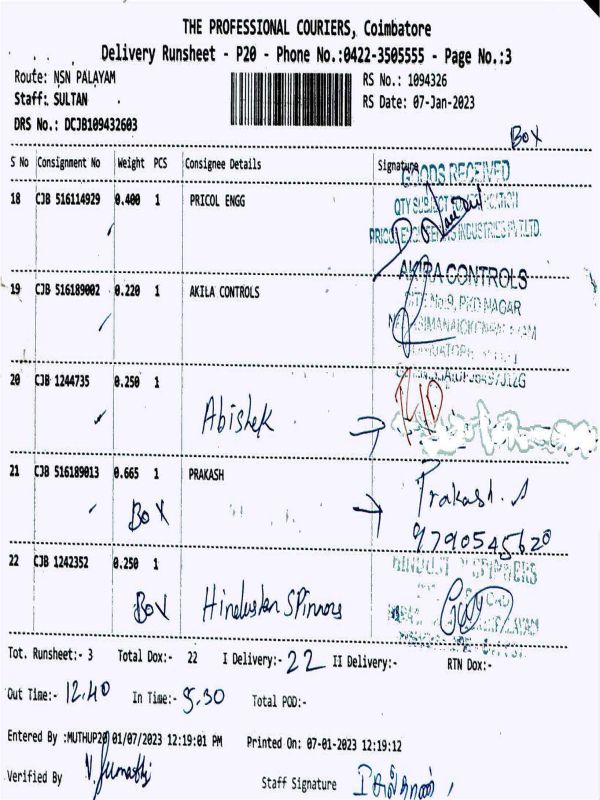 THE PROFESSIONAL COURIERS, Coimbatore
Delivery Runsheet - P20 - Phone No.:0422-3505555 - Page No.:3
Route: NSN PALAYAM
RS No.: 1094326
Staff: SULTAN
RS Date: 07-Jan-2023
DRS No.: DCJB109432603
BOX
S No Consignment No Weight PCS Consignee Details Signature
GOODS RECEIVED
18 CJB 516114929 0.400 1 PRICOL ENGG
QTY SUBJECT TO
PRICOL ENGINEERS INDUSTRIES PVT LTD.
AKIRA CONTROLS
19 CJB 516189002 0.220 1 AKILA CONTROLS
PKD NAGAR
20 CJB 1244735 0.250 1
Abishek
21 CJB 516189013 0.665 1 PRAKASH
Prakash. A
BOX
9790545620
22 CJB 1242352 0.250 1
BOX Hindustan SPinners
Tot. Runsheet:- 3 Total Dox:- 22 I Delivery:- 22 II Delivery:- RTN Dox:-
Out Time:- 12.40 In Time:- 5.30 Total POD:-
Entered By :MUTHUP20 01/07/2023 12:19:01 PM Printed On: 07-01-2023 12:19:12
Verified By V. Sumathi Staff Signature